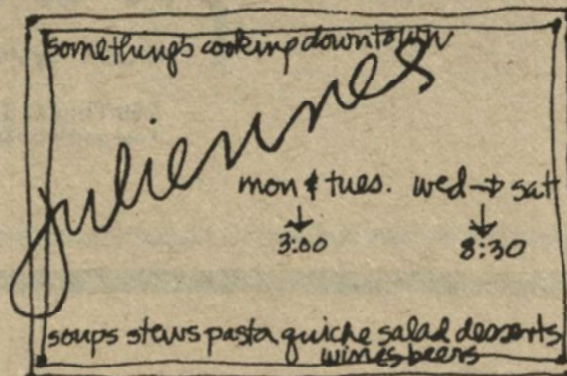 something's cooking downtown
juliennes
mon & tues. wed → sat
↓ ↓
3:00 8:30
soups stews pasta quiche salad desserts
wines beers